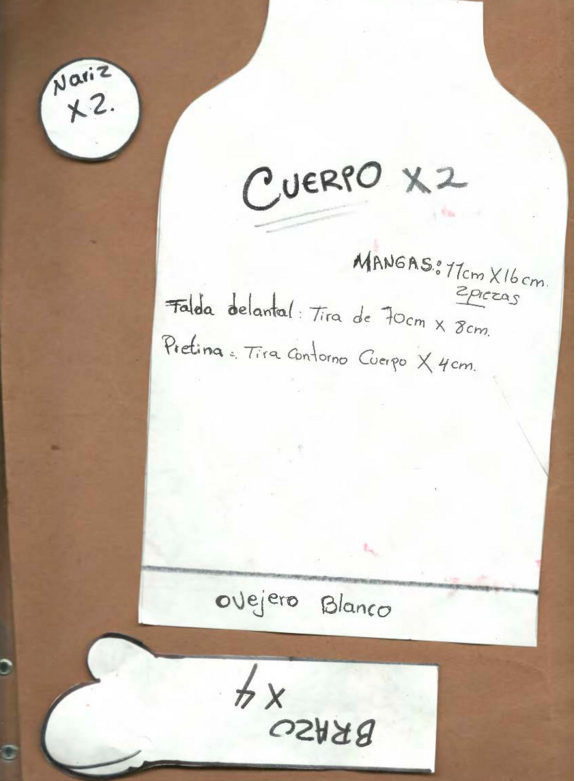 Nariz
X2.
CUERPO X2
MANGAS: 11cm X16cm.
2piezas
Falda delantal: Tira de 70cm x 8cm.
Pretina: Tira Contorno Cuerpo X 4cm.
Ovejero Blanco
BRAZO
X4